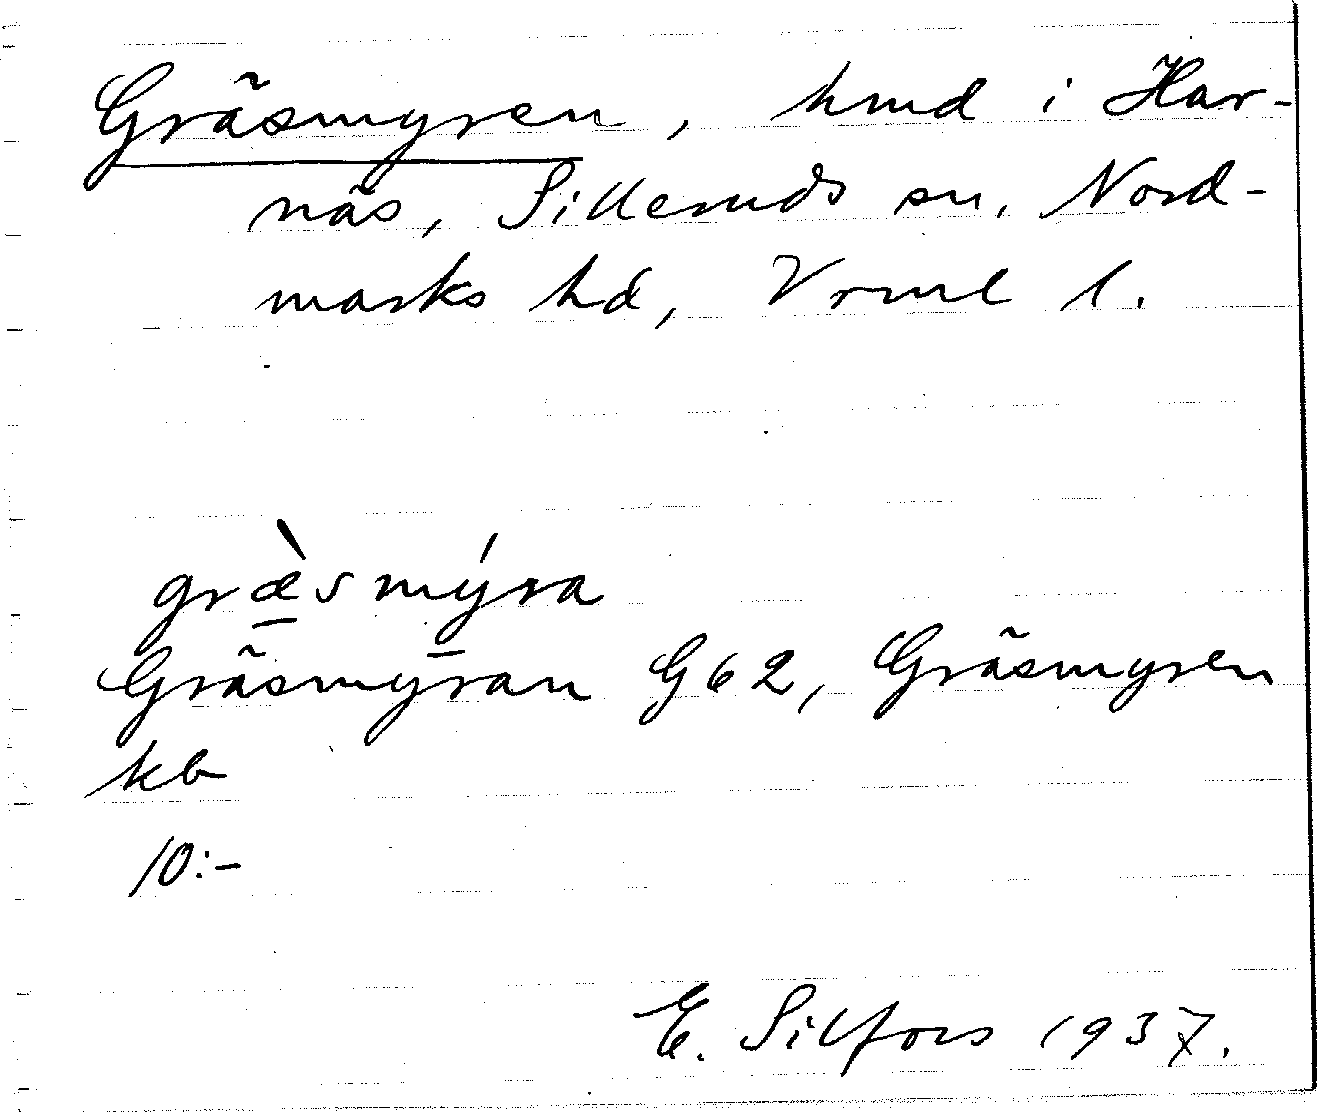 Gräsmyren, hmd i Har-
näs, Silleruds sn, Nord-
marks hd, Vrml l.
græ̠̀smý̠ra
Gräsmyran G62, Gräsmyren
kb
10:-
E. Silfors 1937.